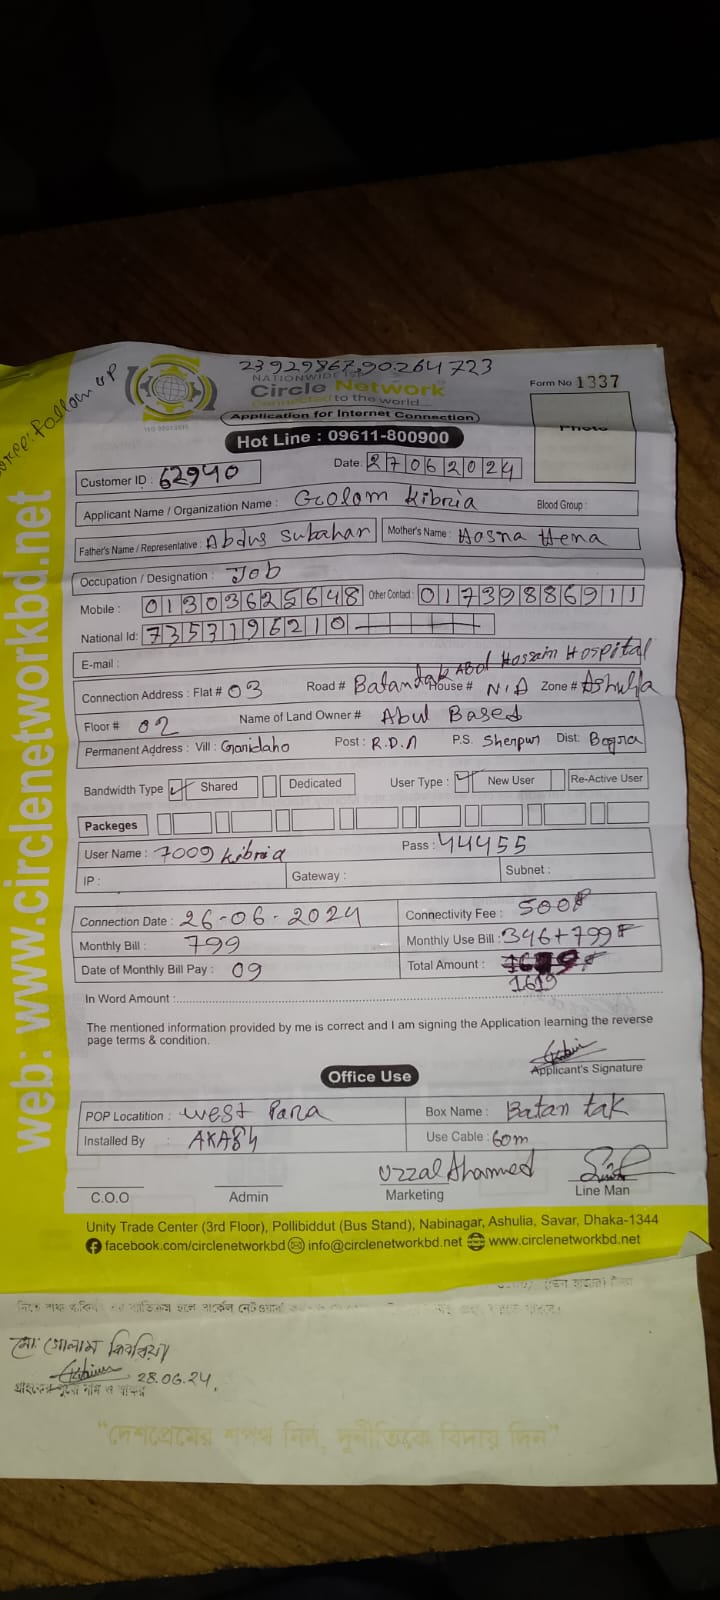 23929867,90.264723
NATIONWIDE ISP
Circle Network
Connected to the world...
Form No 1337
Application for Internet Connection
Photo
Hot Line : 09611-800900
Customer ID : 62940
Date: 27062024
Applicant Name / Organization Name : Golam Kibria Blood Group :
Father's Name / Representative : Abdus Subahan Mother's Name : Hosna Hena
Occupation / Designation : Job
Mobile : 01303625648 Other Contact : 01739886911
National Id: 7353196210
E-mail :
Abol Hossain Hospital
Connection Address : Flat # 03 Road # Batantak House # N/A Zone # Ashulia
Floor # 02 Name of Land Owner # Abul Based
Permanent Address : Vill : Granidaho Post : R.D.A P.S. Sherpur Dist: Bogra
Bandwidth Type Shared Dedicated User Type : New User Re-Active User
Packeges
User Name : 7009 kibria Pass : 44455
IP : Gateway : Subnet :
Connection Date : 26-06-2024 Connectivity Fee : 500৳
Monthly Bill : 799 Monthly Use Bill : 346+799৳
Date of Monthly Bill Pay : 09 Total Amount :
1619
In Word Amount :
The mentioned information provided by me is correct and I am signing the Application learning the reverse
page terms & condition.
Applicant's Signature
Office Use
POP Locatition : West Para Box Name : Batan tak
Installed By : AKA84 Use Cable : 60m
Uzzal Ahammed
C.O.O Admin Marketing Line Man
Unity Trade Center (3rd Floor), Pollibiddut (Bus Stand), Nabinagar, Ashulia, Savar, Dhaka-1344
facebook.com/circlenetworkbd info@circlenetworkbd.net www.circlenetworkbd.net
web: www.circlenetworkbd.net
মো: গোলাম কিবরিয়া
28.06.24,
"দেশপ্রেমের শপথ নিন, দূর্নীতিকে বিদায় দিন"